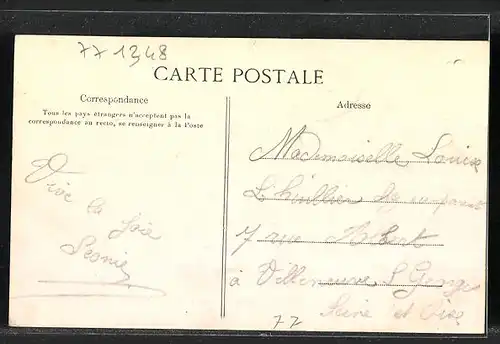 77 1348
CARTE POSTALE
Correspondance
Adresse
Tous les pays étrangers n'acceptent pas la
correspondance au recto, se renseigner à la Poste
Vive la Joie
Mademoiselle Louise
7 rue
à Villeneuve St Georges
Seine et Oise
77